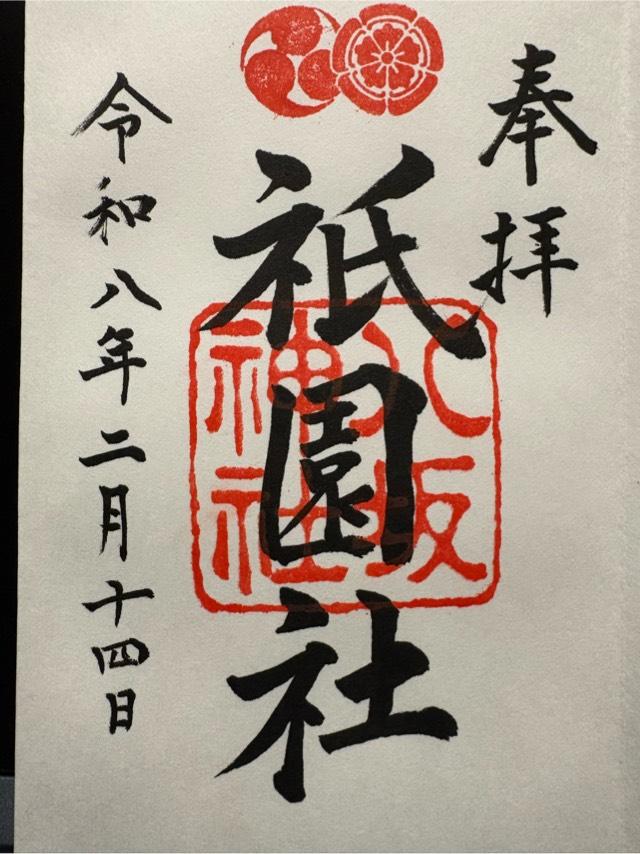 奉拝
祇園社
八坂
神社
令和八年二月十四日